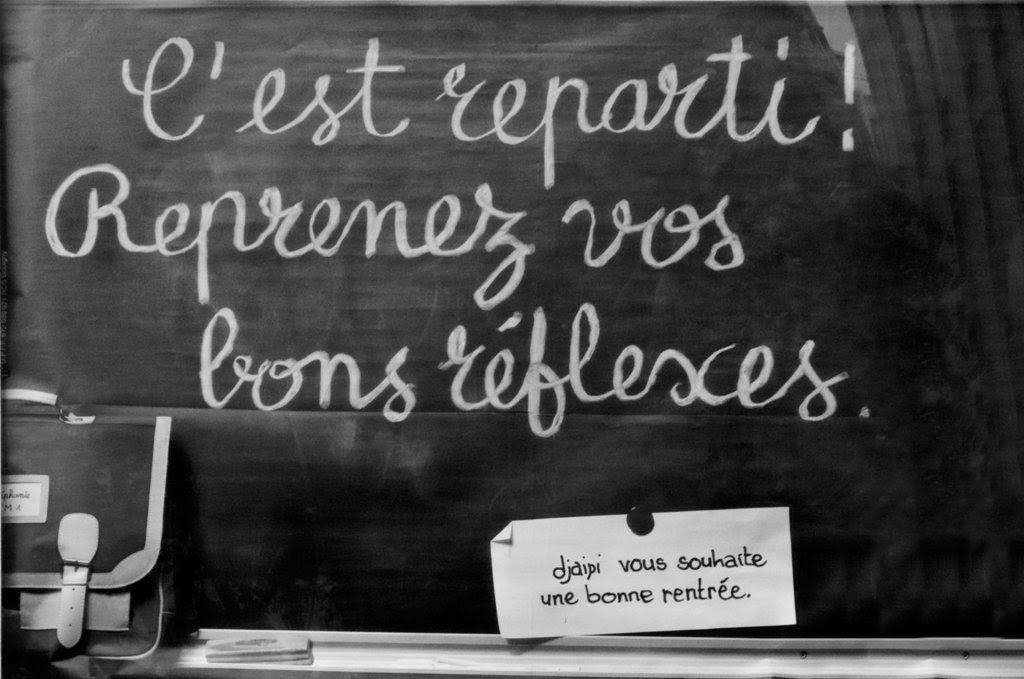 C'est reparti !
Reprenez vos
bons réflexes.
M 1
djaipi vous souhaite
une bonne rentrée.